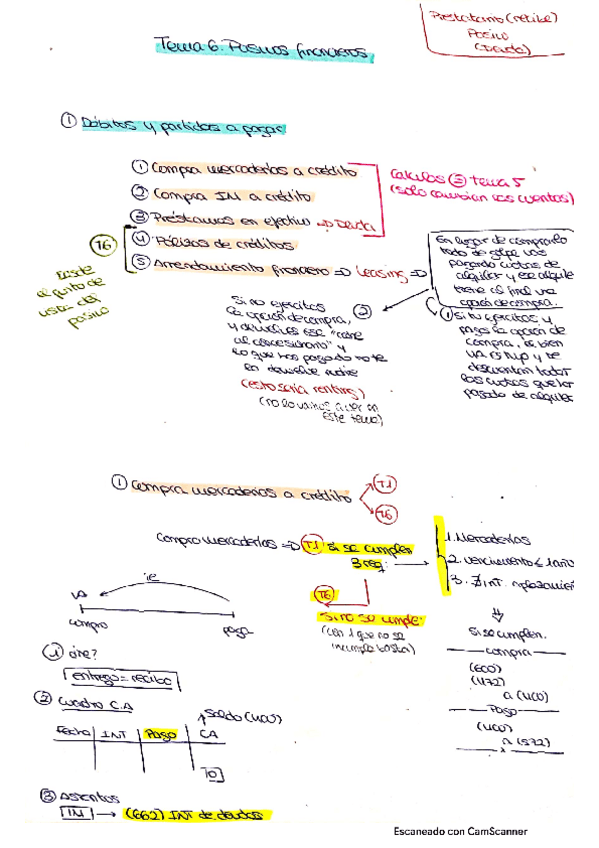 Prestatario (recibe)
Pasivo
(Deuda)
Tema 6. Pasivos financieros
① Débitos y partidas a pagar
① Compra mercaderías a crédito
② Compra IM a crédito
③ Préstamos en efectivo => Deuda
④ Pólizas de créditos
⑤ Arrendamiento financiero => Leasing =>
Calculos = Tema 5
(solo cambian las cuentas)
T6
Desde
el punto de
vista del
pasivo
En lugar de comprarlo
todo de golpe vas
pagando cuotas de
alquiler y ese alquiler
tiene al final una
opción de compra.
② Si no ejercitas
la opción de compra,
y devuelves ese "coche
al concesionario" y
lo que has pagado no te
lo devuelve nadie
(esto sería renting)
(no lo vamos a ver en
este tema)
① Si tu ejercitas y
pagas la opción de
compra, el bien
es tuyo y te
descuentan todas
las cuotas que has
pagado de alquiler
① Compra mercaderías a crédito
T.1
T6
Compro mercaderías => T.1 si se cumplen
3 req:
1. Mercaderías
2. vencimiento ≤ 1 año
3. ∄ INT. aplazamiento
T6
"si no se cumple"
(con 1 que no se
incumple basta)
Si se cumplen.
compra
(600)
(472)
a (400)
Pago
(400)
a (572)
ie
VA
compro
pago
① ¿ie?
entrego = recibo
② Cuadro C.A
Saldo (400)
Fecha INT Pago CA
TO
③ Asientos
IM → (662) INT de deudas
Escaneado con CamScanner